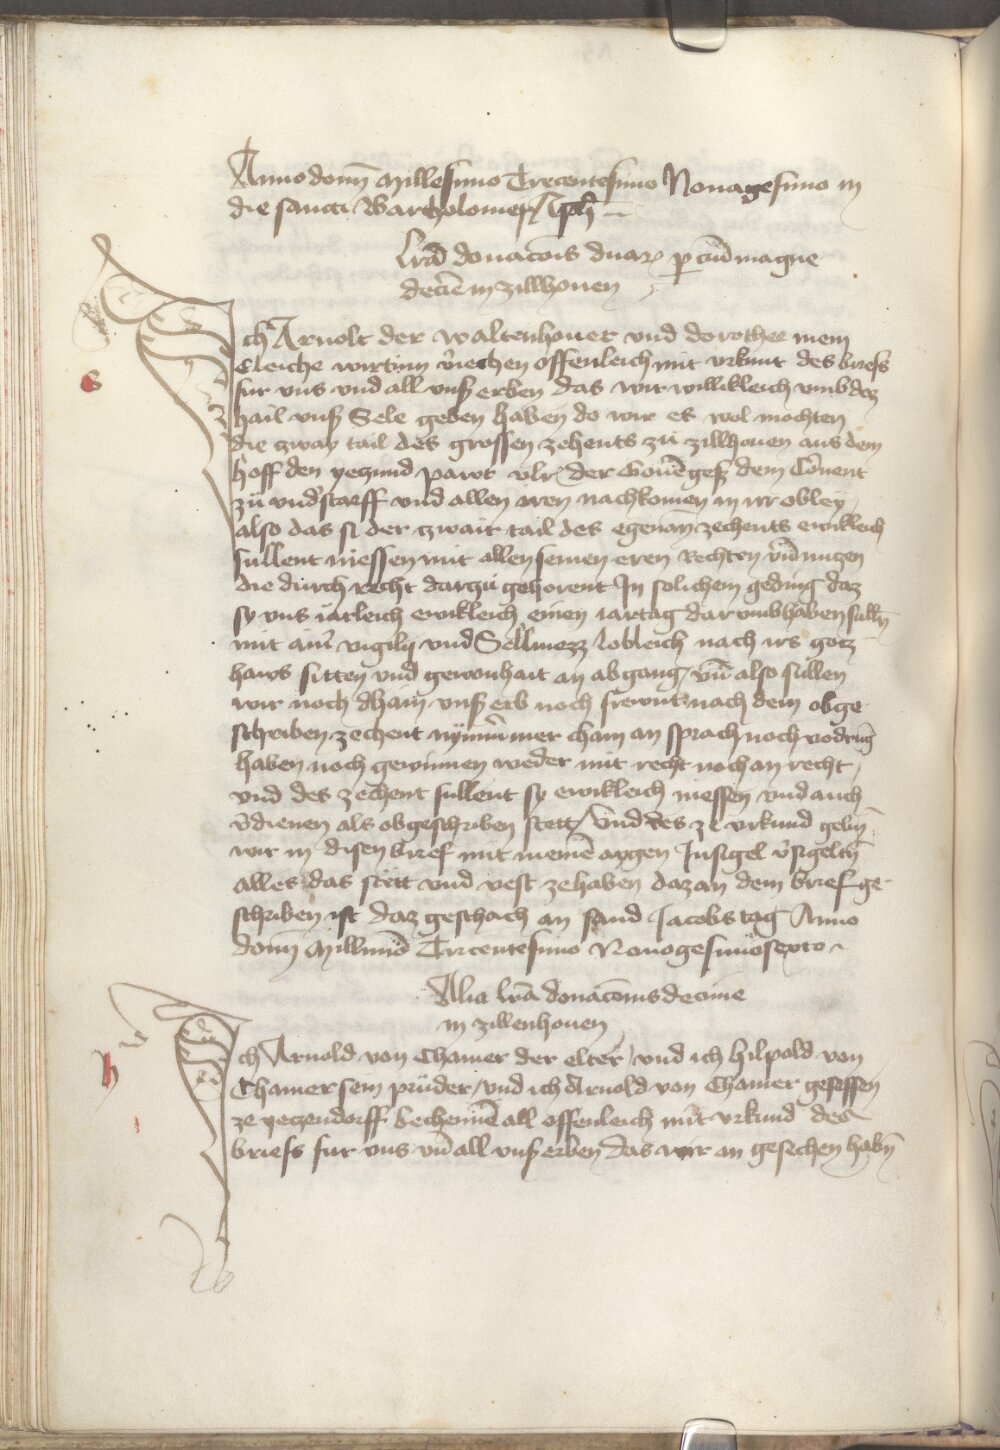 Anno domī Millesimo Trecentesimo Nonagesimo in
die sancti Bartholomey
Lrā donacōis duar₎ ꝑciū magne
decīe in zillhouen
Ich Arnolt der Waltenhouer vnd dorothee mein
Eleiche wirtinn v̄iechen offenleich mit vrkunt des briefs
fur vns vnd all vnsß erben das wir willikleich vmb daz
hail vnsß Sele geben haben do wir es wol mochten
die zway tail des grossen zehents zu zillhouen aus dem
hoff den yeczund pawt vlr̄ der dem Cōuent
zü vnd̓starff vnd allen iren nachkomen in irr obley
also das si der zwair tail des egenan̄ zechents ewikleich
sullent niessen mit allen seinen eren Rechten vn̄ nuczen
die durch recht darzu gehorent In solichem geding daz
sy vns iarleich ewikleich einen iartag dar vmb haben sulln̄
mit ain̄ vigily vnd Selmezz lobleich nach irs gotz
haws sitten vnd gewonhait an abgang / vn̄ also sullen
wir noch dhain vnsß erb noch frewnt nach dem obge
schriben zechent nymm̄ mer chain an sprach noch vodrūg
haben noch gewinnen weder mit recht noch an recht /
vnd des zechent sullent sy ewikleich niessen vnd auch
v̄dienen als obgeschriben stett / vnd des ze vrkund gebn̄
wir in disen brief mit meinē aygen Insigel v̓sigeltn̄
alles das stett vnd vest ze haben daz an dem brief ge
schriben ist daz geschach an sand Jacobs tag Anno
domī Millmiō Trecentesimo Nonogesimosexto
Alia lrā donacōnis decime
in zillenhouen
Ich Arnold von Chamer der elter / vnd ich hilpold von
Chamer sein prüder / vnd ich Arnold von Chamer gesessen
ze yeczendorff bechennē all offenleich mit vrkund des
briefs fur vns vn̄ all vnsß erben das wir an gesechen habn̄